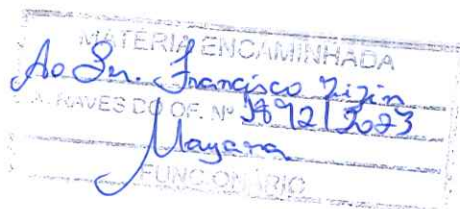 MATÉRIA ENCAMINHADA
Ao Sr. Francisco
ATRAVÉS DO OF. Nº 3892/2023
Mayara
FUNCIONÁRIO